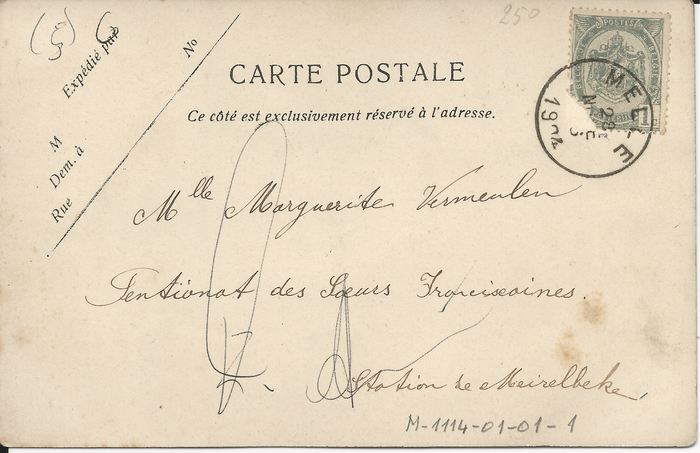 (5)
250
Expédié par
No
M
Dem. à
Rue
CARTE POSTALE
Ce côté est exclusivement réservé à l'adresse.
POSTES
MELLE
1904
Mlle Marguerite Vermeulen
Pentionat des Sœurs Franciscaines.
Station de Meirelbeke,
M-1114-01-01-1